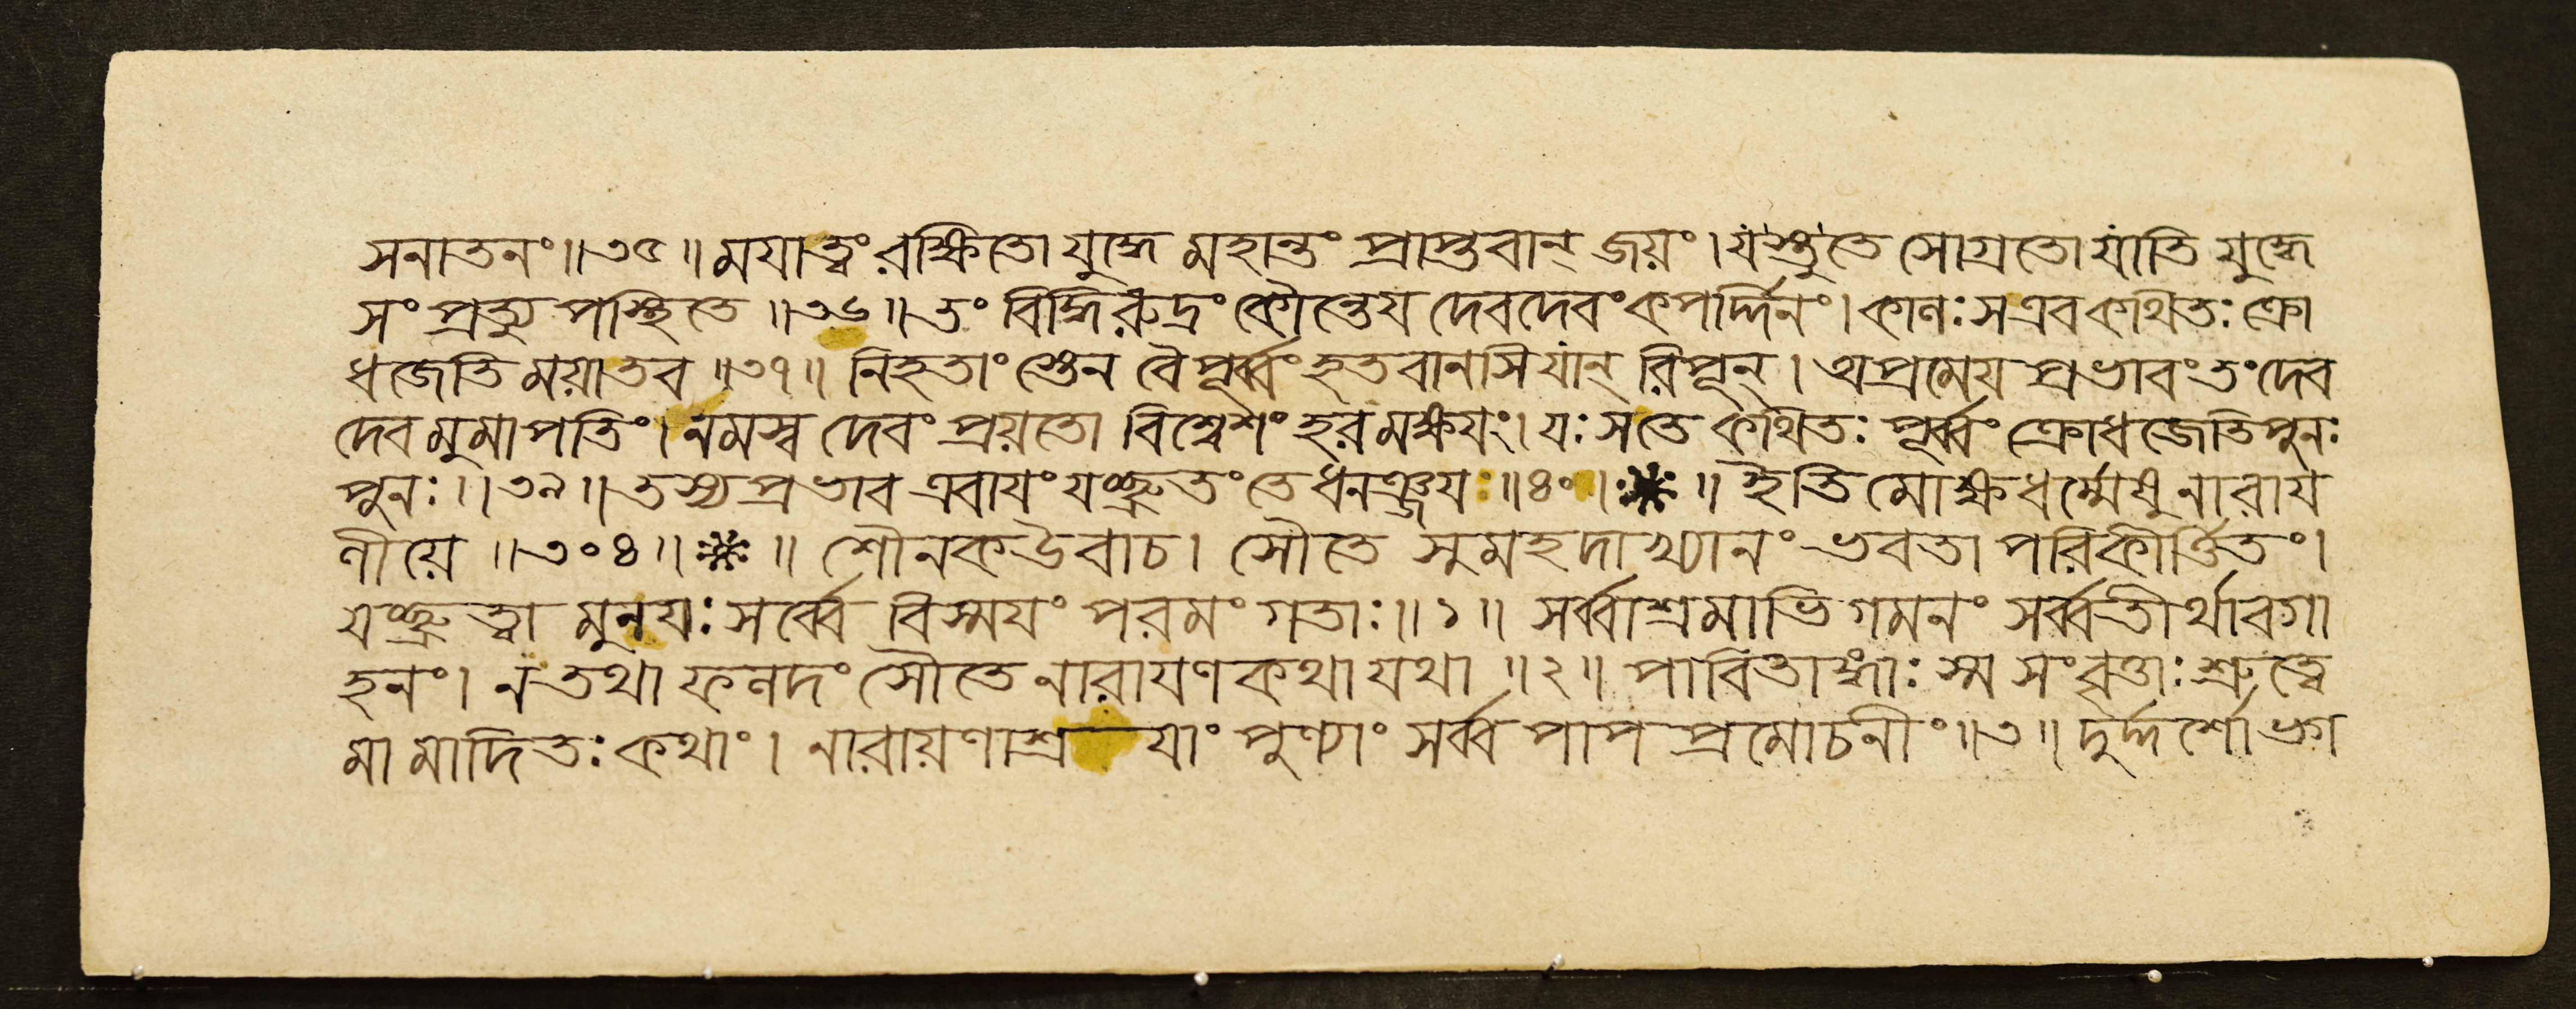 সনাতনং॥৩৫॥ময়াত্বং রক্ষিতো যুদ্ধে মহান্তং প্রাপ্তবান্ জয়ং।যস্তুতে সোগ্রতো যাতি যুদ্ধে
সংপ্রত্যুপস্থিতে॥৩৬॥তং বিদ্ধি রুদ্রং কৌন্তেয় দেবদেবং কপর্দ্দিনং।কালঃ স এব কথিতঃ ক্রো
ধজেতি ময়া তব॥৩৭॥ নিহতাংস্তেন বৈ পূর্ব্বং হতবানসি যান্ রিপূন্। অপ্রমেয় প্রভাবং তং দেব
দেবমুমাপতিং। নমস্ব দেবং প্রয়তো বিশ্বেশং হরমক্ষয়ং।যঃ স তে কথিতঃ পূর্ব্বং ক্রোধজেতি পুনঃ
পুনঃ॥৩৯॥তস্য প্রভাব এবায়ং যচ্ছ্রুতং তে ধনঞ্জয়ঃ॥৪০॥*॥ ইতি মোক্ষধর্ম্মেষু নারায়
ণীয়ে॥৩০৪॥*॥ শৌনক উবাচ। সৌতে সুমহদাখ্যানং ভবতা পরিকীর্ত্তিতং।
যচ্ছ্রুত্বা মুনয়ঃ সর্ব্বে বিস্ময়ং পরমং গতাঃ॥১॥ সর্ব্বাশ্রমাভিগমনং সর্ব্বতীর্থাবগা
হনং। ন তথা ফলদং সৌতে নারায়ণকথা যথা॥২॥ পাবিতাঙ্গাঃ স্ম সংবৃত্তাঃ শ্রুত্বে
মামাদিতঃ কথাং। নারায়ণাশ্রয়াং পুণ্যাং সর্ব্বপাপপ্রমোচনীং॥৩॥দুর্দ্দর্শো ভগ